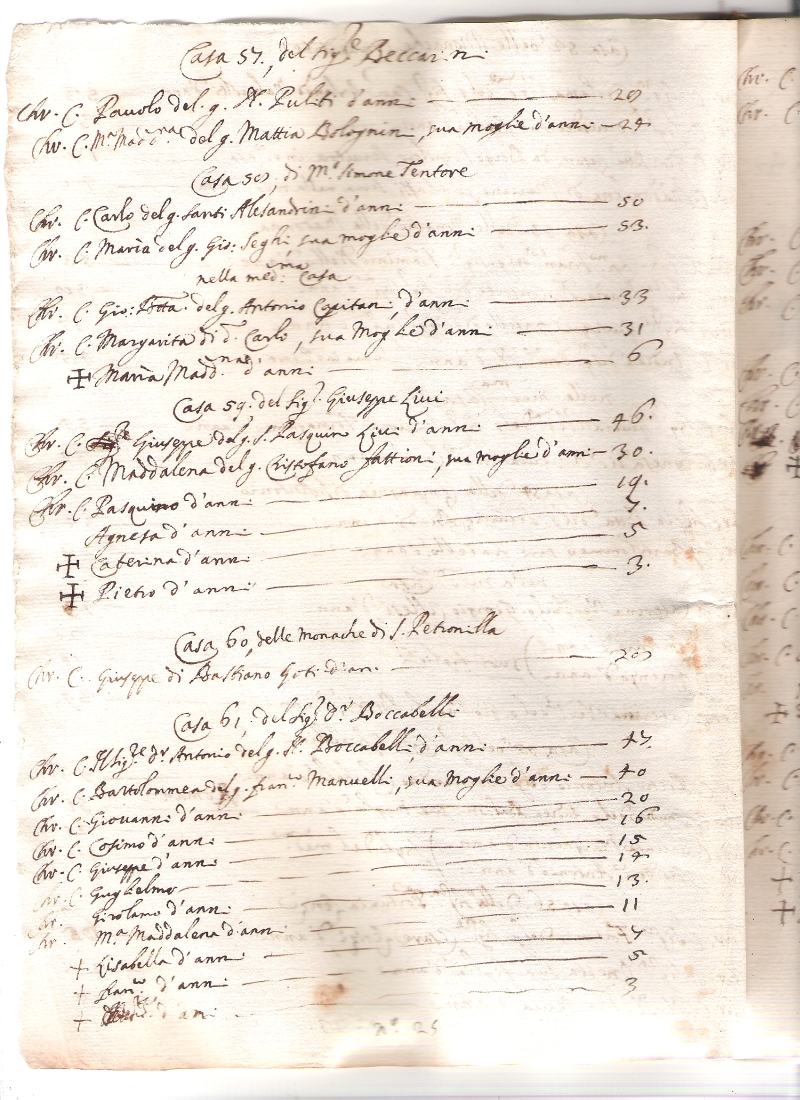 Casa 57, del Sig.re Beccarini
Chr. C. Pavolo del q. Puliti d'anni — 29
Chr. C. M.a Madd.na del q. Mattia Bolognini, sua moglie d'anni — 24
Casa 58, di M.o Simone Tentore
Chr. C. Carlo del q. Santi Alesandrini d'anni — 50
Chr. C. Maria del q. Gio: Seghi sua moglie d'anni — 53.
nella med.ma Casa
Chr. C. Gio: Btta. del q. Antonio Capitani, d'anni — 33
Chr. C. Margarita di d.o Carlo, sua Moglie d'anni — 31
✠ Maria Madd.na d'anni — 6
Casa 59. del Sig.r Giuseppe Livi
Chr. C. Giuseppe del q. S. Pasquino Livi d'anni — 46.
Chr. C. Maddalena del q. Cristofano Fattioni, sua moglie d'anni — 30.
Chr. C. Pasquino d'anni — 19.
Agnesa d'anni — 7.
✠ Caterina d'anni — 5
✠ Pietro d'anni — 3.
Casa 60, delle Monache di S. Petronilla
Chr. C. Giuseppe di Bastiano Goti d'an.
Casa 61, del Sig.r D.r Boccabelli
Chr. C. Il Sig.re D.r Antonio del q. Boccabelli, d'anni — 47.
Chr. C. Bartolommea del q. Fran.co Manuelli, sua Moglie d'anni — 40
Chr. C. Giovanni d'anni — 20
Chr. C. Cosimo d'anni — 16
Chr. C. Giuseppe d'anni — 15
Chr. C. Guglielmo — 14
Chr. Girolamo d'anni — 13.
Chr. M.a Maddalena d'anni — 11
+ Lisabella d'anni — 7
+ Fran.co d'anni — 5
+ d'anni — 3
n.o 25